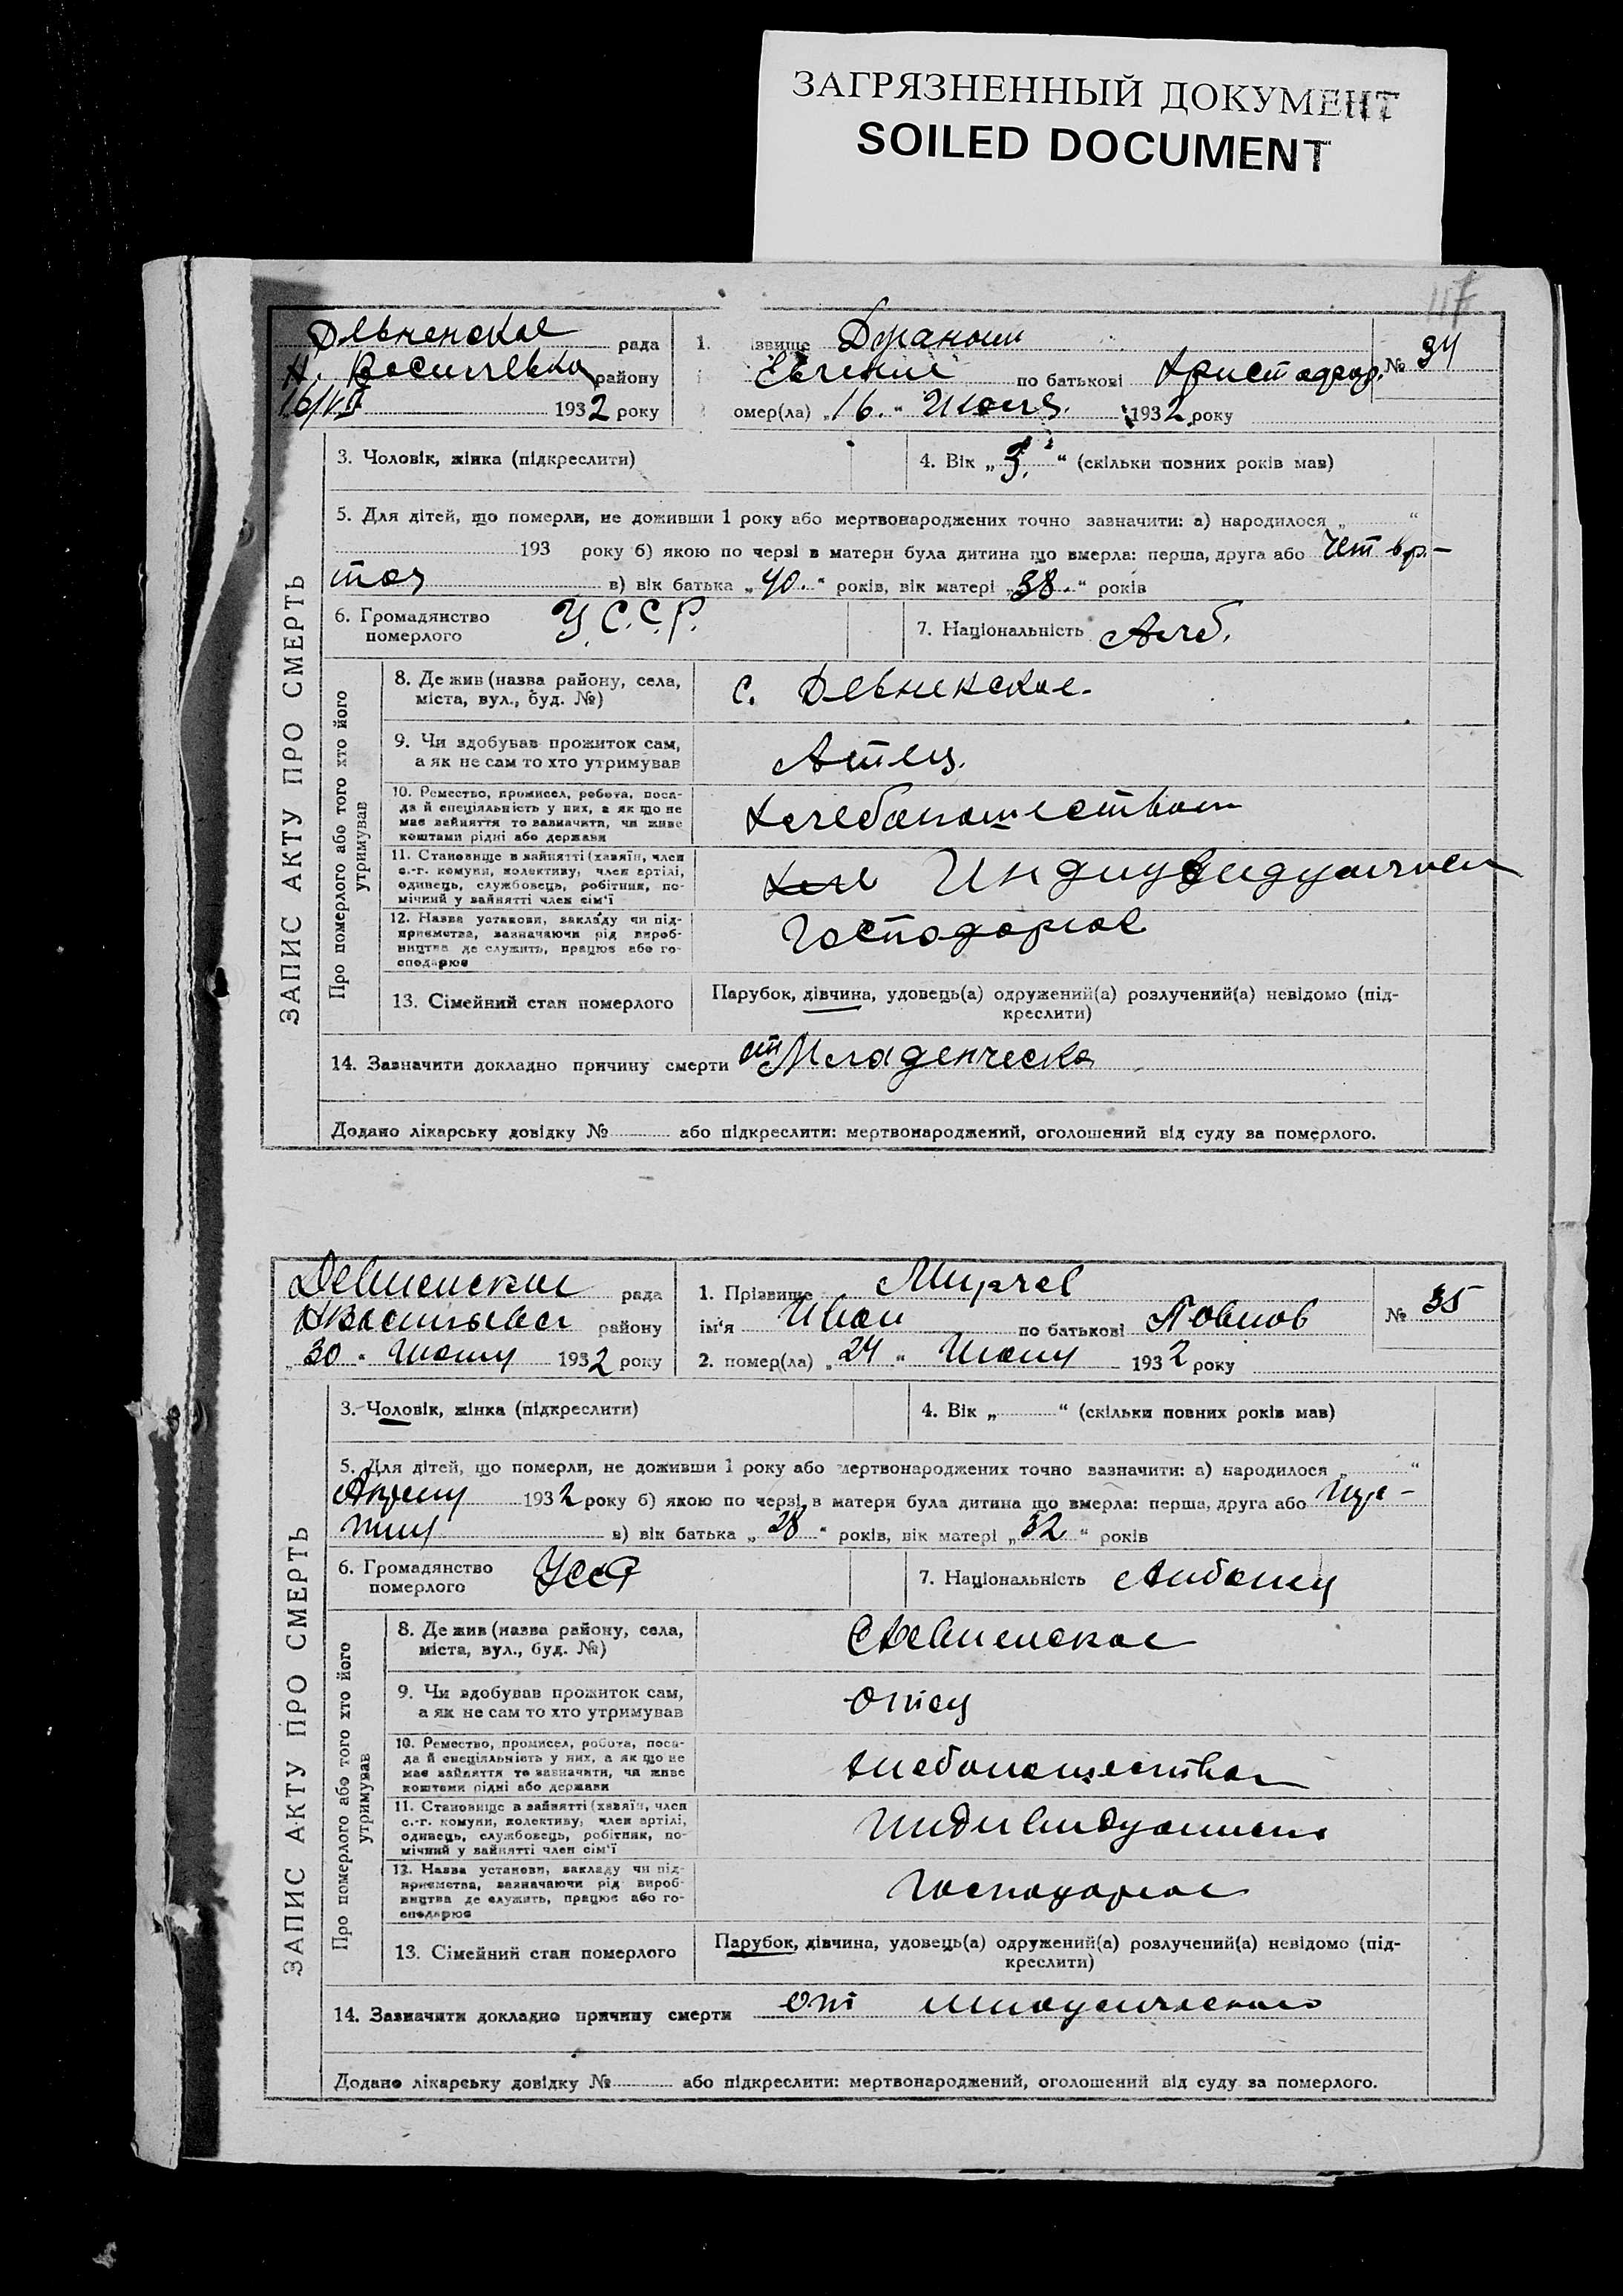 ЗАГРЯЗНЕННЫЙ ДОКУМЕНТ
SOILED DOCUMENT
117
Девненское рада
Н. Васильевка району
16/VII 1932 року
1. ізвище Дуланош
Евгений по батькові Христофор.
омер(ла) „16.“ Июля. 1932 року
№ 34
ЗАПИС АКТУ ПРО СМЕРТЬ
3. Чоловік, жінка (підкреслити)
4. Вік „3.“ (скільки повних років мав)
5. Для дітей, що померли, не доживши 1 року або мертвонароджених точно зазначити: а) народилося „ “
193 року б) якою по черзі в матери була дитина що вмерла: перша, друга або Четвер-
тая в) вік батька „40.“ років, вік матері „38.“ років
6. Громадянство
померлого У.С.С.Р.
7. Національність Алб.
Про померлого або того хто його
утримував
8. Де жив (назва району, села,
міста, вул., буд. №)
с. Девненское.
9. Чи здобував прожиток сам,
а як не сам то хто утримував
Атец.
10. Ремество, промисел, робота, поса-
да й спеціяльність у них, а як що не
має зайняття то зазначити, чи живе
коштами рідні або держави
Хлебопашеством
11. Становище в зайнятті (хазяїн, член
с.-г. комуни, колективу, член артілі,
одинець, службовець, робітник, по-
мічний у зайнятті член сім'ї
12. Назва установи, закладу чи під-
приємства, зазначаючи рід вироб-
ництва де служить, працює або го-
сподарює
Господарное
13. Сімейний стан померлого
Парубок, дівчина, удовець(а) одружений(а) розлучений(а) невідомо (під-
креслити)
14. Зазначити докладно причину смерти от Младенческа
Додано лікарську довідку № або підкреслити: мертвонароджений, оголошений від суду за померлого.
Девненское рада
Нвасильевка району
„30“ Июня 1932 року
1. Прізвище Мирчев
ім'я Иван по батькові Павлов
2. помер(ла) „24“ Июня 1932 року
№ 35
ЗАПИС АКТУ ПРО СМЕРТЬ
3. Чоловік, жінка (підкреслити)
4. Вік „ “ (скільки повних років мав)
5. Для дітей, що померли, не доживши 1 року або мертвонароджених точно зазначити: а) народилося „ “
Апрели 1932 року б) якою по черзі в матери була дитина що вмерла: перша, друга або
в) вік батька „28“ років, вік матері „32“ років
6. Громадянство
померлого УССР
7. Національність Албанец
Про померлого або того хто його
утримував
8. Де жив (назва району, села,
міста, вул., буд. №)
С Девненское
9. Чи здобував прожиток сам,
а як не сам то хто утримував
отец
10. Ремество, промисел, робота, поса-
да й спеціяльність у них, а як що не
має зайняття то зазначити, чи живе
коштами рідні або держави
хлебопашеством
11. Становище в зайнятті (хазяїн, член
с.-г. комуни, колективу, член артілі,
одинець, службовець, робітник, по-
мічний у зайнятті член сім'ї
Индивидуальное
12. Назва установи, закладу чи під-
приємства, зазначаючи рід вироб-
ництва де служить, працює або го-
сподарює
Господарное
13. Сімейний стан померлого
Парубок, дівчина, удовець(а) одружений(а) розлучений(а) невідомо (під-
креслити)
14. Зазначити докладно причину смерти от младенческаго
Додано лікарську довідку № або підкреслити: мертвонароджений, оголошений від суду за померлого.